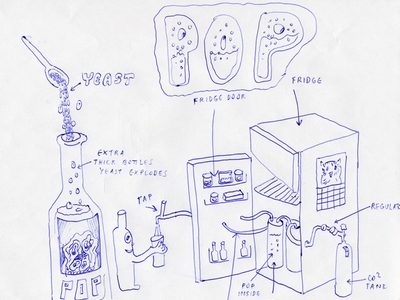 POP
YEAST
FRIDGE DOOR
FRIDGE
EXTRA
THICK BOTTLES
YEAST EXPLODES
TAP
REGULATO
POP
INSIDE
CO2
TANK
POP